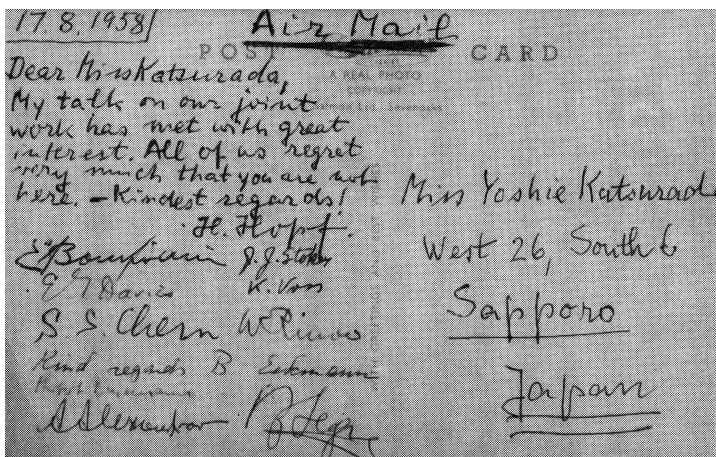 17.8.1958
Air Mail
POST CARD
A REAL PHOTO
COPYRIGHT
Dear Miss Katsurada,
My talk on our joint
work has met with great
interest. All of us regret
very much that you are not
here. – Kindest regards!
H. Hopf.
J.J. Stoker
E.T. Davies K. Voss
S. S. Chern W Rinow
Kind regards B Eckmann
Miss Yoshie Katsurada
West 26, South 6
Sapporo
Japan